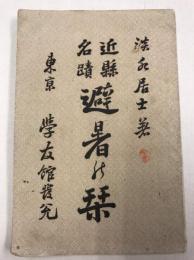 淡水居士著
近縣
名蹟
避暑の栞
東京
学友館發兌